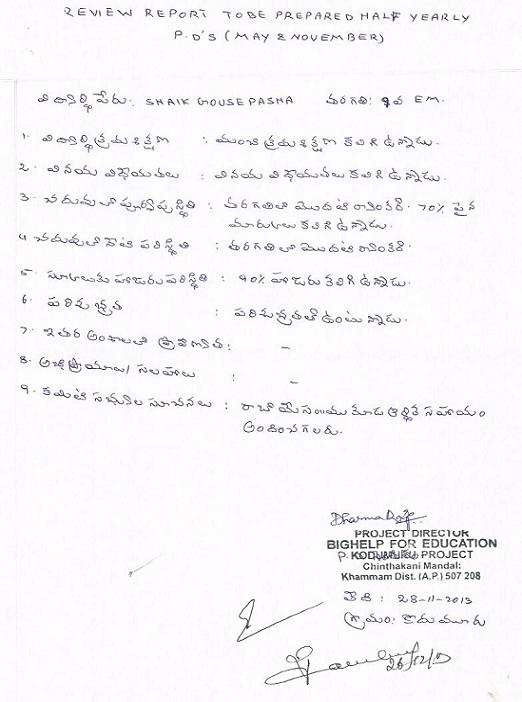 REVIEW REPORT TO BE PREPARED HALF YEARLY
P.D'S (MAY & NOVEMBER)
విద్యార్థి పేరు: SHAIK GOUSE PASHA తరగతి: 9వ EM.
1. విద్యార్థి క్రమశిక్షణ : మంచి క్రమశిక్షణ కలిగి ఉన్నాడు.
2. వినయ విధేయతలు : వినయ విధేయతలు కలిగి ఉన్నాడు.
3. చదువులో పూర్వపు స్థితి : తరగతిలో మొదటి ర్యాంకర్. 70% పైన
మార్కులు కలిగి ఉన్నాడు.
4. చదువులో నేటి పరిస్థితి : తరగతిలో మొదటి ర్యాంకర్.
5. స్కూలుకు హాజరు పరిస్థితి : 90% హాజరు కలిగి ఉన్నాడు.
6. పరిశుభ్రత : పరిశుభ్రతతో ఉంటున్నాడు.
7. ఇతర అంశాలలో ప్రావీణ్యత : -
8. అభిప్రాయాలు/ సలహాలు : -
9. కమిటీ సభ్యుల సూచనలు : రాబోయే కూడ ఆర్థిక సహాయం
అందించగలరు.
PROJECT DIRECTOR
BIGHELP FOR EDUCATION
KODUMURU PROJECT
Chinthakani Mandal:
Khammam Dist. (A.P.) 507 208
తేది : 28-11-2013
గ్రామం: కొదుమూరు
26/12/